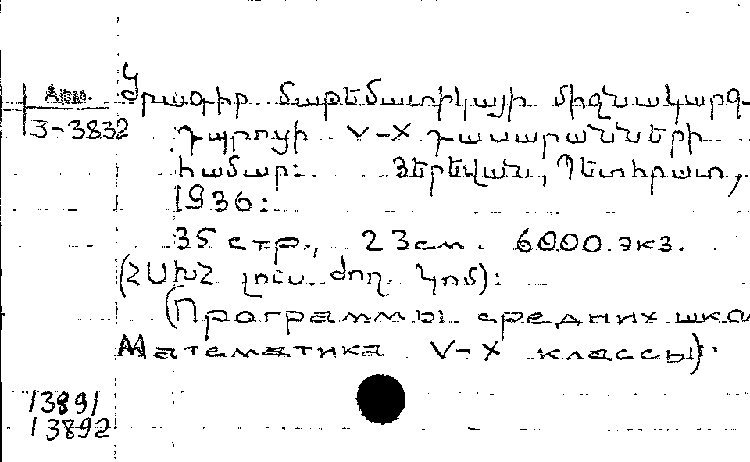 Арм.
3-3832
Ծրագիր մաթեմատիկայի միջնակարգ
դպրոցի V-X դասարանների
համար: Յերեվան, Պետհրատ,
1936:
35 стр., 23 см. 6000 экз.
(ՀՍԽՀ լուս. ժող. կոմ):
(Программы средних шко
Математика V-X классы):
13891
13892